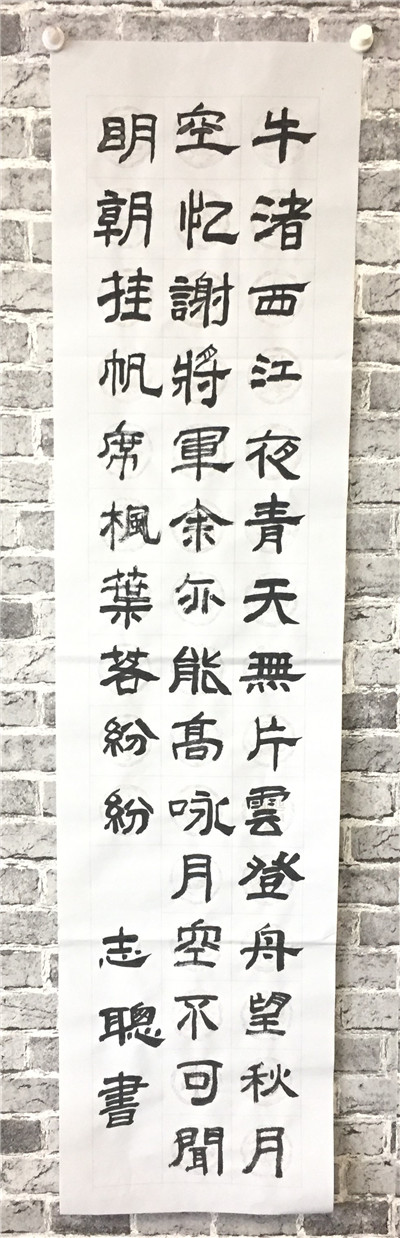 牛渚西江夜青天無片雲登舟望秋月
空忆謝將軍余亦能髙咏月空不可聞
眀朝挂帆席楓葉茖紛紛 志聰書